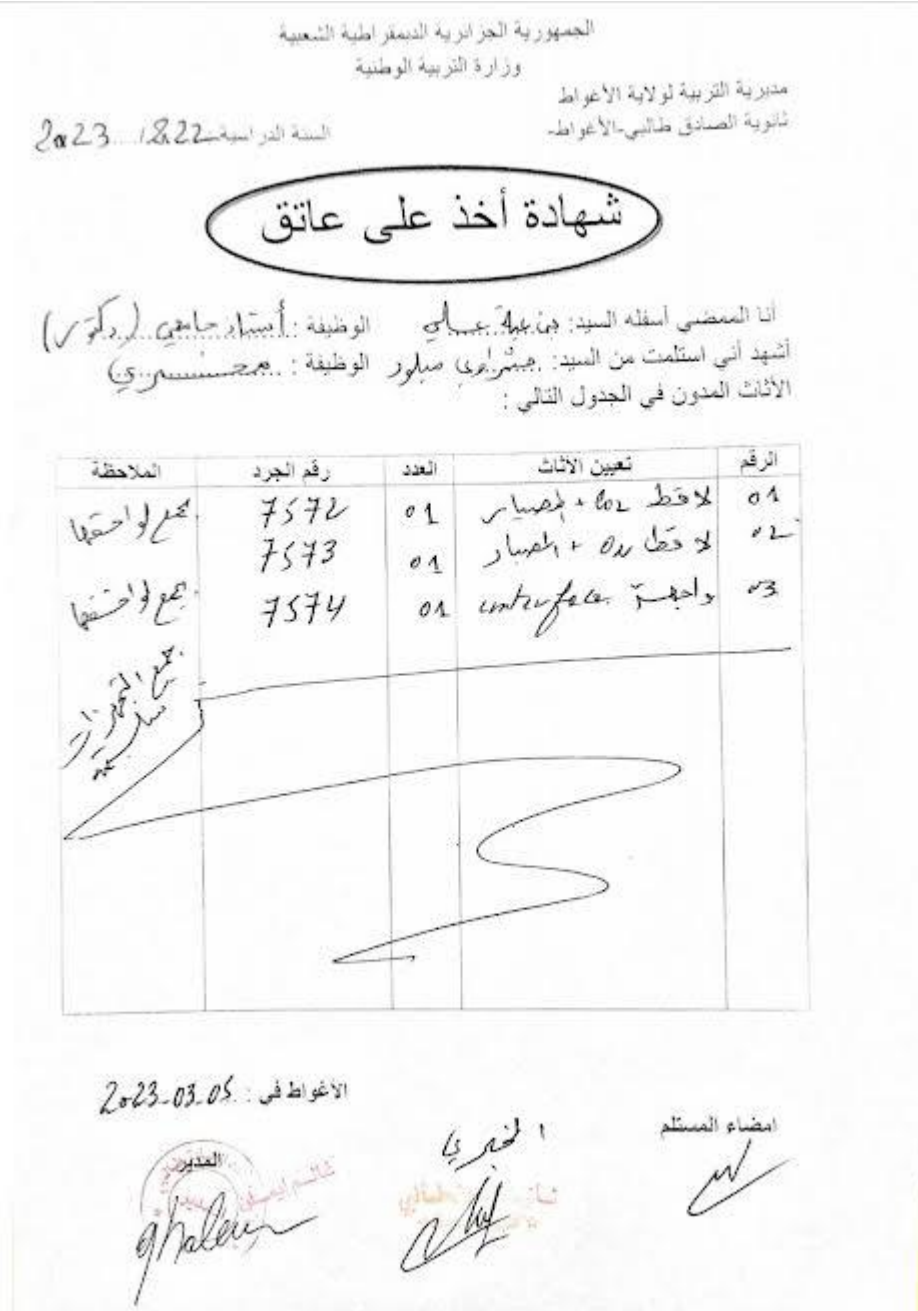 الجمهورية الجزائرية الديمقراطية الشعبية
وزارة التربية الوطنية
مديرية التربية لولاية الأغواط
ثانوية الصادق طالبي-الأغواط-
السنة الدراسية 2022/2023
شهادة أخذ على عاتق
أنا الممضي أسفله السيد: بن عية الوظيفة: أستاذ جامعي (دكتور)
أشهد أني استلمت من السيد: ميلود الوظيفة: مخبري
الأثاث المدون في الجدول التالي :
الرقم تعيين الأثاث العدد رقم الجرد الملاحظة
01 لاقط CO2 + المصبار 01 7572 بجميع لواحقها
02 لاقط O2 + المصبار 01 7573
03 واجهة interface 01 7574 بجميع لواحقها
جميع التجهيزات
الأغواط في : 2023-03-05
امضاء المستلم
المخبري
المدير
ghalem